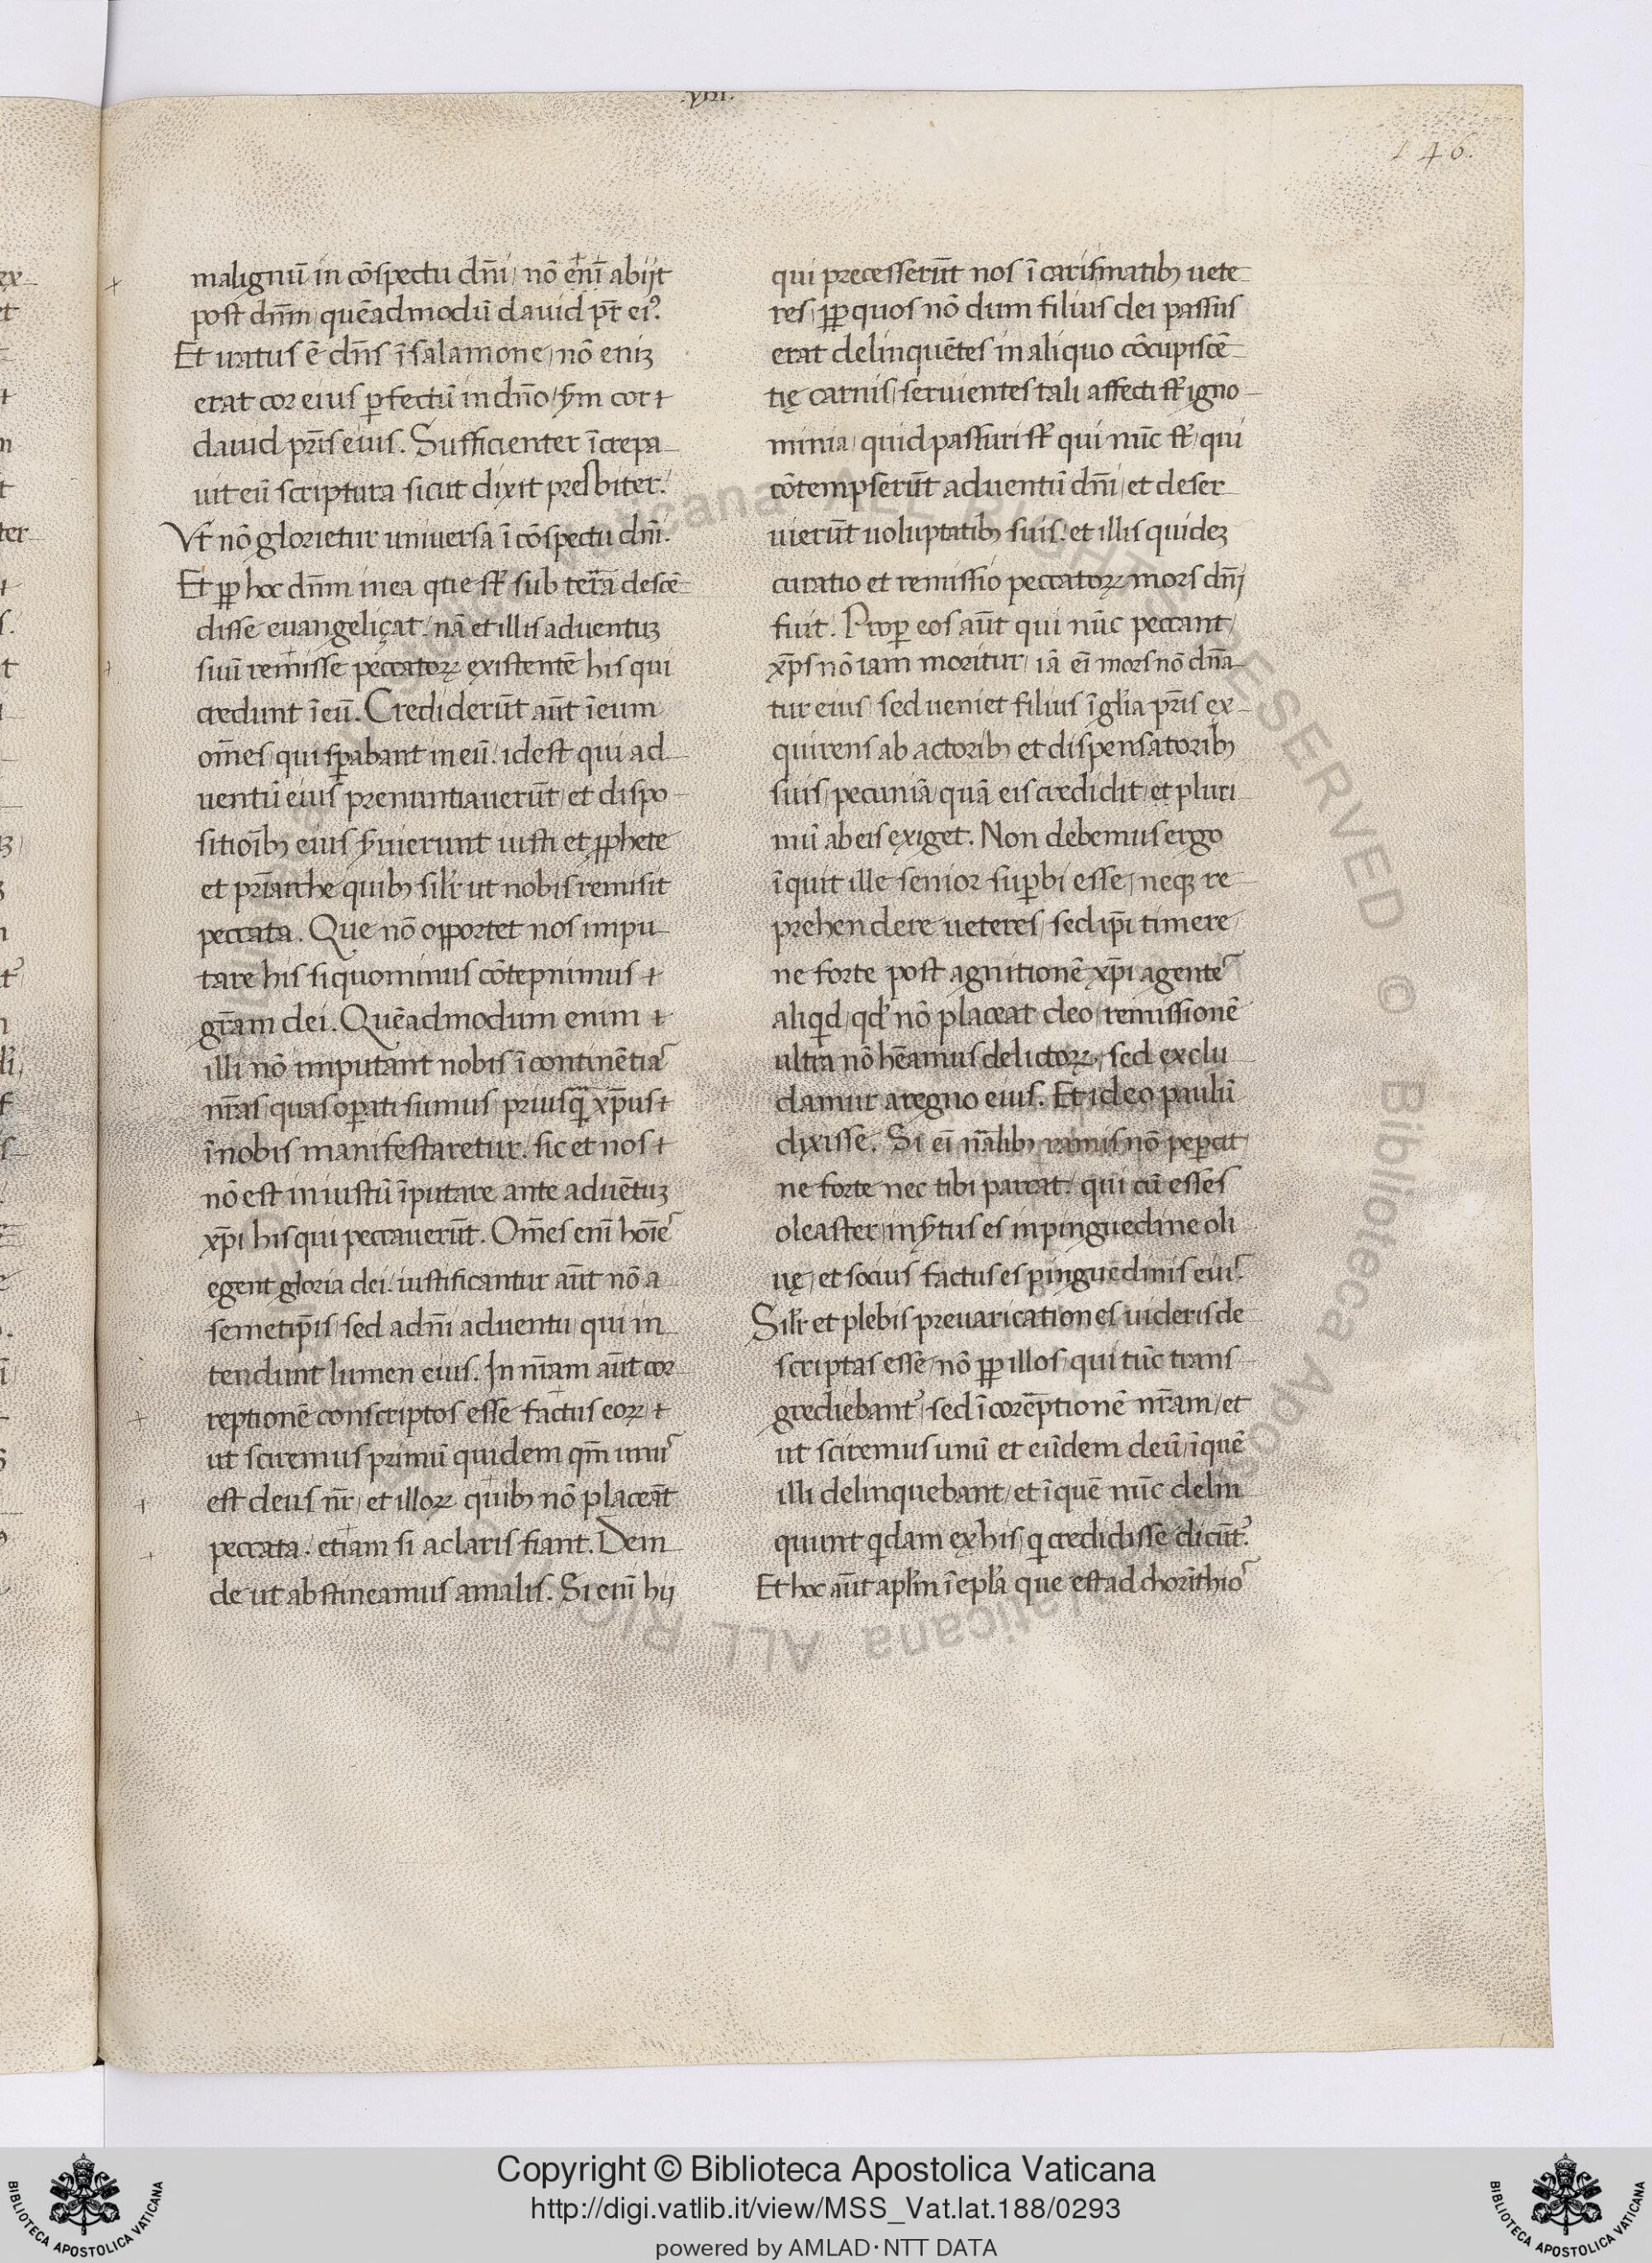 .VIII.
146.
malignū in cōspectu dn̄i / nō enī abijt
post dnm̄ / quēadmodū dauid pr̄ ei⁹.
Et iratus ē dn̄s ī salamone / nō eniꝫ
erat cor eius ꝑfectū in dn̄o / sm̄ cor +
dauid pr̄is eius. Sufficienter īcrepa–
uit eū scriptura sicut dixit presbiter.
Vt nō glorietur universa ī cōspectu dn̄i.
Et ꝓꝑ hoc dnm̄ in ea que st̄ sub terrā descē–
disse euangelizat. nā et illis aduentuꝫ
suū remisse peccatoꝝ existentē his qui
credunt ī eū. Crediderūt aūt ī eum
om̄es / qui sꝑabant in eū. id est qui ad–
uentū eius prenuntiauerūt / et dispo–
sitioīb; eius s̄uierunt iusti et ꝓphete
et pr̄iarche quib; silr̄ ut nobis remisit
peccata. Que nō opportet nos impu–
tare his si quominus cōtepnimus +
gr̄am dei. Quēadmodum enim +
illi nō imputant nobis ī continētias
nr̄as / quas oꝑati sumus / priusq̄ xp̄us +
ī nobis manifestaretur. sic et nos +
nō est iniustū īputare ante aduētuꝫ
xp̄i his qui peccauerūt. Om̄es enī hoīes
egent gloria dei. iustificantur aūt nō a
semetip̄is / sed a dn̄i aduentu / qui in–
tendunt lumen eius. In nr̄am aūt cor–
reptionē conscriptos esse factus eoꝝ / +
ut sciremus primū quidem qm̄ unus
est deus nr̄ / et illoꝝ quib; nō placēt
peccata. etiam si a claris fiant. Dein–
de ut abstineamus a malis. Si enī hij
qui precesserūt nos ī carismatib; uete–
res / ꝓꝑ quos nō dum filius dei passus
erat delinquētes in aliquo cōcupiscē–
tię carnis / seruientes tali affecti st̄ igno–
minia / quid passuri st̄ qui nūc st̄ / qui
cōtempserūt aduentū dn̄i / et deser–
uierūt uoluptatib; suis. et illis quideꝫ
curatio et remissio peccatoꝝ mors dn̄j
fuit. Proꝑ eos aūt qui nūc peccant /
xp̄s nō iam moritur / iā eī mors nō dn̄a–
tur eius / sed ueniet filius ī glīa pr̄is ex–
quirens ab actorib; et dispensatorib;
suis / pecuniā / quā eis credidit / et pluri–
mū ab eis exiget. Non debemus ergo
īquit ille senior suꝑbi esse / neqꝫ re–
prehendere ueteres / sed ip̄i timere /
ne forte post agnitionē xp̄i agentes
aliqd / qd̄ nō placeat deo / remissionē
ultra nō hēamus delictoꝝ / sed exclu–
damur a regno eius. Et ideo paulū
dixisse. Si eī nālib; ramis nō peꝑcit
ne forte nec tibi parcat. qui cū esses
oleaster / ins̄tus es in pinguedine oli–
uę / et socius factus es pinguedinis eius.
Silr̄ et plebis preuaricationes uideris de–
scriptas esse / nō ꝓꝑ illos / qui tūc trans–
grediebant᷒ / sed ī coreptionē nr̄am / et
ut sciremus unū et eūdem deū / ī quē
illi delinquebant / et ī quē nūc delin–
quunt qdam ex his / q credidisse dicūt᷒.
Et hoc aūt aplm̄ ī epl̄a que est ad chorīthios
Copyright © Biblioteca Apostolica Vaticana
http://digi.vatlib.it/view/MSS_Vat.lat.188/0293
powered by AMLAD·NTT DATA
BIBLIOTECA APOSTOLICA VATICANA
BIBLIOTECA APOSTOLICA VATICANA